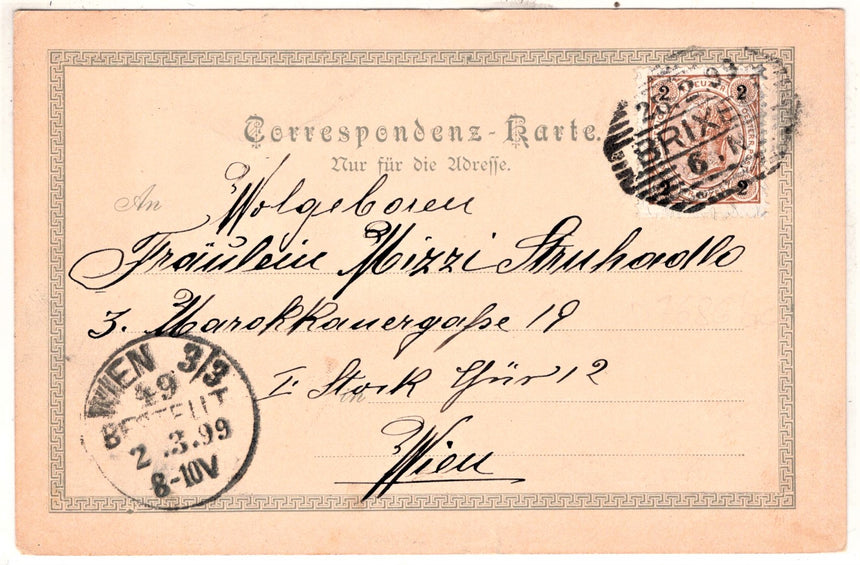 Correspondenz-Karte.
Nur für die Adresse.
An Wolgeboren
Fräulein Mizzi Struhadlo
3. Marokkanergaße 19
I. Stock Thür 12
in
Wien
2 2
BRIXE
2
WIEN 3/3
49
BESTELLT
2.3.99
8-10V